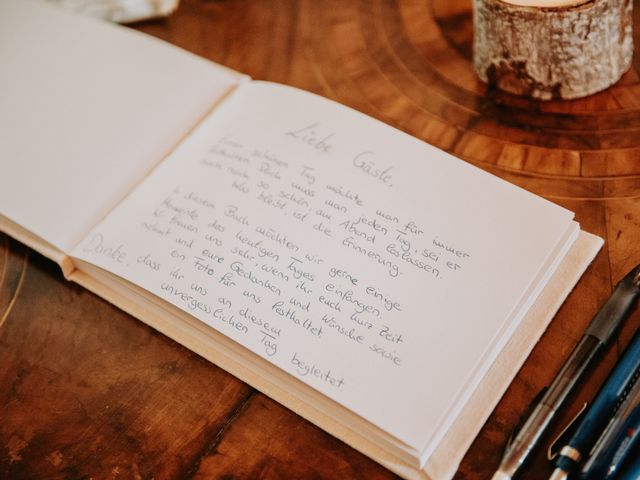 Liebe Gäste,
Einen schönen Tag möchte man für immer
festhalten. Doch muss man jeden Tag, sei er
auch noch so schön, am Abend loslassen.
Was bleibt, ist die Erinnerung.
In diesem Buch möchten wir gerne einige
Momente des heutigen Tages einfangen.
Wir freuen uns sehr, wenn ihr euch kurz Zeit
nehmt und eure Gedanken und Wünsche sowie
ein Foto für uns festhaltet.
Danke, dass ihr uns an diesem
unvergesslichen Tag begleitet.